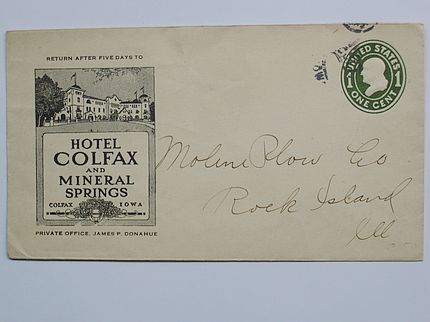 RETURN AFTER FIVE DAYS TO
HOTEL
COLFAX
AND
MINERAL
SPRINGS
COLFAX IOWA
PRIVATE OFFICE, JAMES P. DONAHUE
UNITED STATES
ONE CENT
Moline Plow Co
Rock Island
Ill